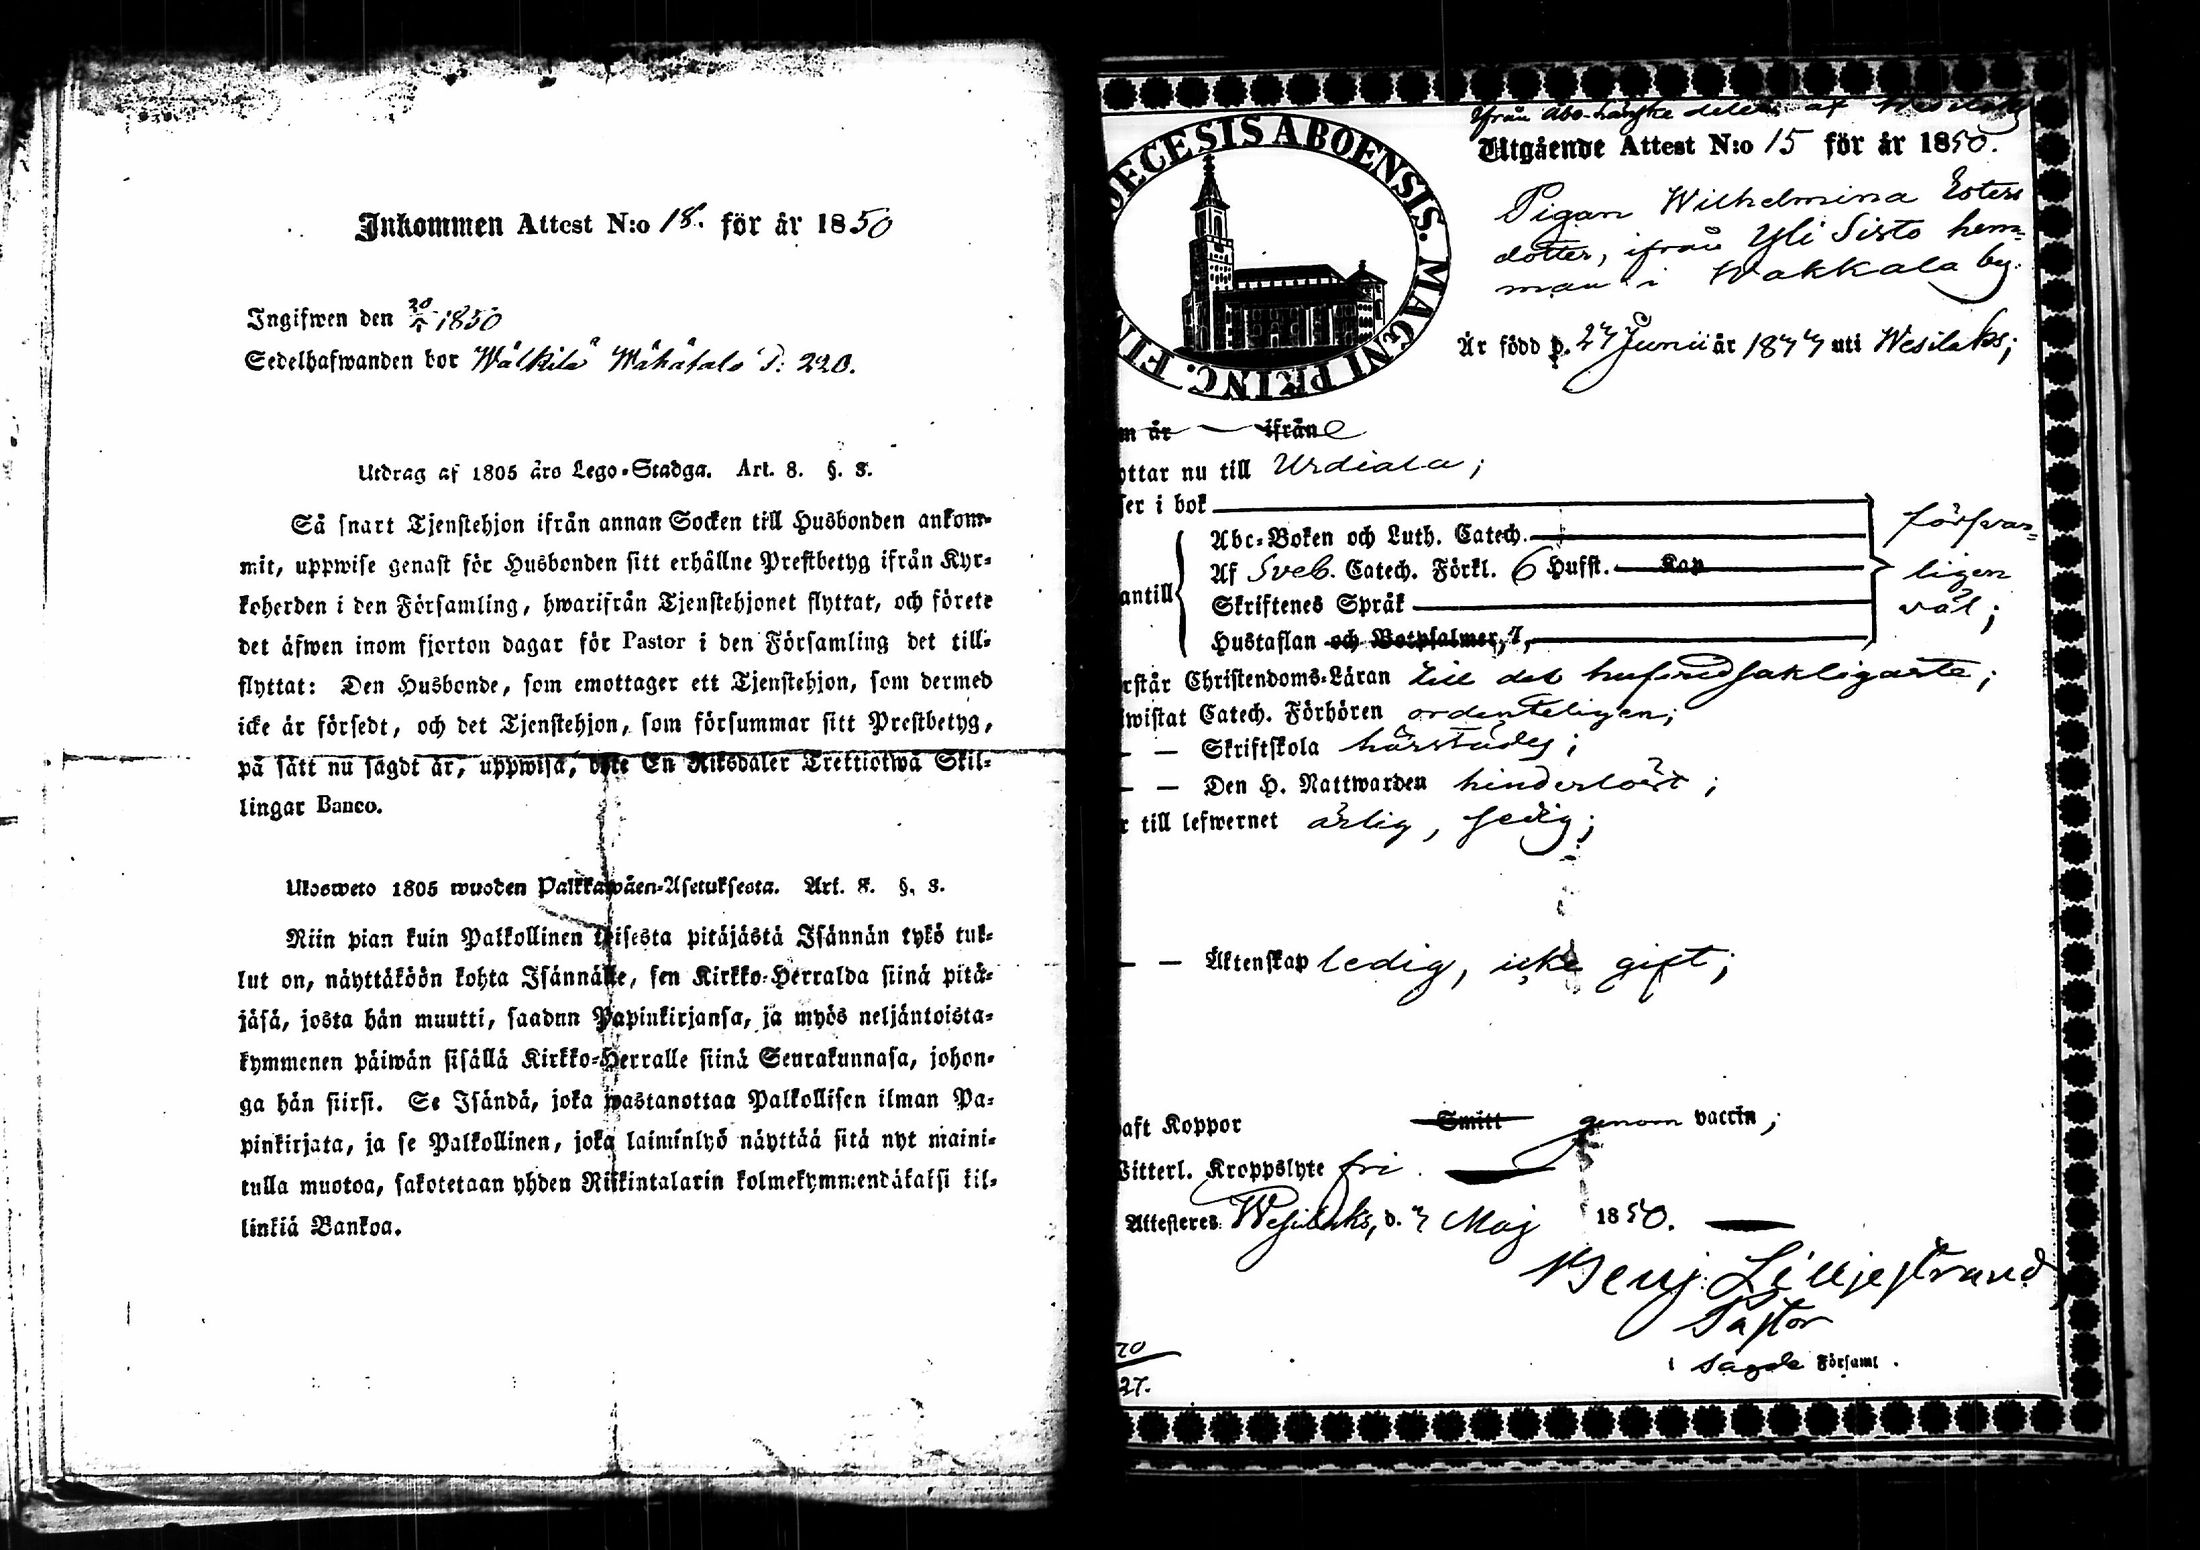 Inkommen Attest N:o 18. för år 1850
Ingifwen den 20/5 1850
Sedelhafwanden bor Wälkilä Wähätalo P: 220.
Utdrag af 1805 års Lego-Stadga. Art. 8. §. 3.
Så snart Tjenstehjon ifrån annan Socken till Husbonden ankom-
mit, uppwise genast för Husbonden sitt erhållne Prestbetyg ifrån Kyr-
koherden i den Församling, hwarifrån Tjenstehjonet flyttat, och förete
det äfwen inom fjorton dagar för Pastor i den Församling det till-
flyttat: Den Husbonde, som emottager ett Tjenstehjon, som dermed
icke är försedt, och det Tjenstehjon, som försummar sitt Prestbetyg,
på sätt nu sagdt är, uppwisa, böte En Riksdaler Trettiotwå Skil-
lingar Banco.
Ulosweto 1805 wuoden Palkkawäen-Asetuksesta. Art. 8. §. 3.
Niin pian kuin Palkollinen toisesta pitäjästä Isännän tykö tul-
lut on, näyttäköön kohta Isännälle, sen Kirkko-Herralda siinä pitä-
jäsä, josta hän muutti, saadun Papinkirjansa, ja myös neljäntoista-
kymmenen päiwän sisällä Kirkko-Herralle siinä Seurakunnasa, johon-
ga hän siirsi. Se Isändä, joka wastanottaa Palkollisen ilman Pa-
pinkirjata, ja se Palkollinen, joka laiminlyö näyttää sitä nyt maini-
tulla muotoa, sakotetaan yhden Riikintalarin kolmekymmendäkaksi kil-
linkiä Bankoa.
DECESIS ABOENSIS. MAGNI PRINC. FIN
ifrån Åbo-länske delen af Wesilaks
Utgående Attest N:o 15 för år 1850.
Pigan Wilhelmina Esters
dotter, ifrån Yli Sisto hem-
man i Wakkala by.
Är född d. 27 Junii år 1827 uti Wesilaks;
m år ifrån
yttar nu till Urdiala;
ser i bok
Abc-Boken och Luth. Catech.
Af Sveb. Catech. Förkl. 6 Hufst. Kap
antill Skriftenes Språk
Hustaflan och Botpsalmer,
försvar-
ligen
väl;
rstår Christendoms-Läran till det hufvudsakligaste;
wistat Catech. Förhören ordenteligen;
— — Skriftskola härstädes;
— — Den H. Nattwarden hinderlöst;
r till lefwernet ärlig, sedig;
— — Äktenskap ledig, icke gift;
aft Koppor Smitt genom vaccin;
Witterl. Kroppslyte fri.
Attesteres Wesilaks, d. 7 Maj 1850.
Benj. Liljestrand
Pastor
i sagde Församl.
20
27.